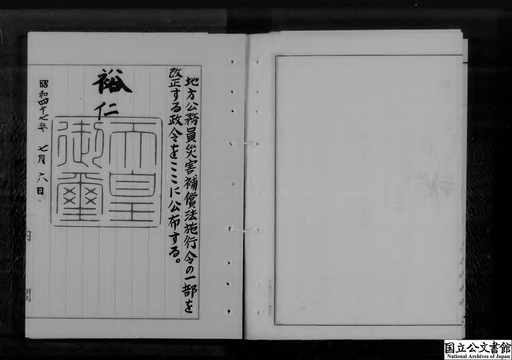 地方公務員災害補償法施行令の一部を
改正する政令をここに公布する。
裕仁
天皇
御璽
昭和四十七年七月六日
国立公文書館
National Archives of Japan